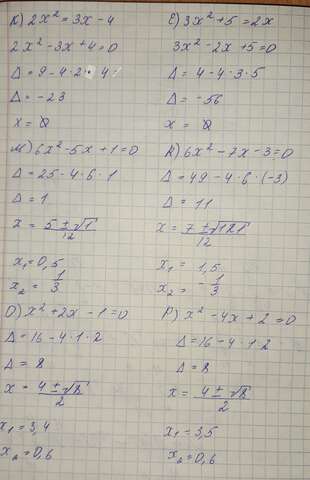 К) 2x² = 3x - 4
2x² - 3x + 4 = 0
Δ = 9 - 4 · 2 · 4
Δ = -23
x = Ø
Е) 3x² + 5 = 2x
3x² - 2x + 5 = 0
Δ = 4 - 4 · 3 · 5
Δ = -56
x = Ø
М) 6x² - 5x + 1 = 0
Δ = 25 - 4 · 6 · 1
Δ = 1
x = (5 ± √1)/12
x₁ = 0,5
x₂ = 1/3
6x² - 7x - 3 = 0
Δ = 49 - 4 · 6 · (-3)
Δ = 11
x = (7 ± √121)/12
x₁ = 1,5
x₂ = -1/3
О) x² + 2x - 1 = 0
Δ = 16 - 4 · 1 · 2
Δ = 8
x = (4 ± √8)/2
x₁ = 3,4
x₂ = 0,6
Р) x² - 4x + 2 = 0
Δ = 16 - 4 · 1 · 2
Δ = 8
x = (4 ± √8)/2
x₁ = 3,5
x₂ = 0,6